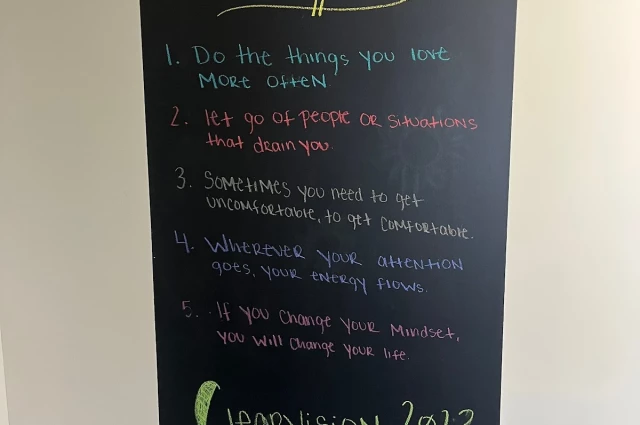 1. Do the things you love
MORE OFTEN
2. let go of people OR situations
that drain you.
3. SOMETIMES you need to get
uncomfortable, to get comfortable.
4. WHEREVER YOUR attention
goes, YOUR ENERGY flows.
5. If you change your Mindset,
you will change your life.
Clearvision 2023